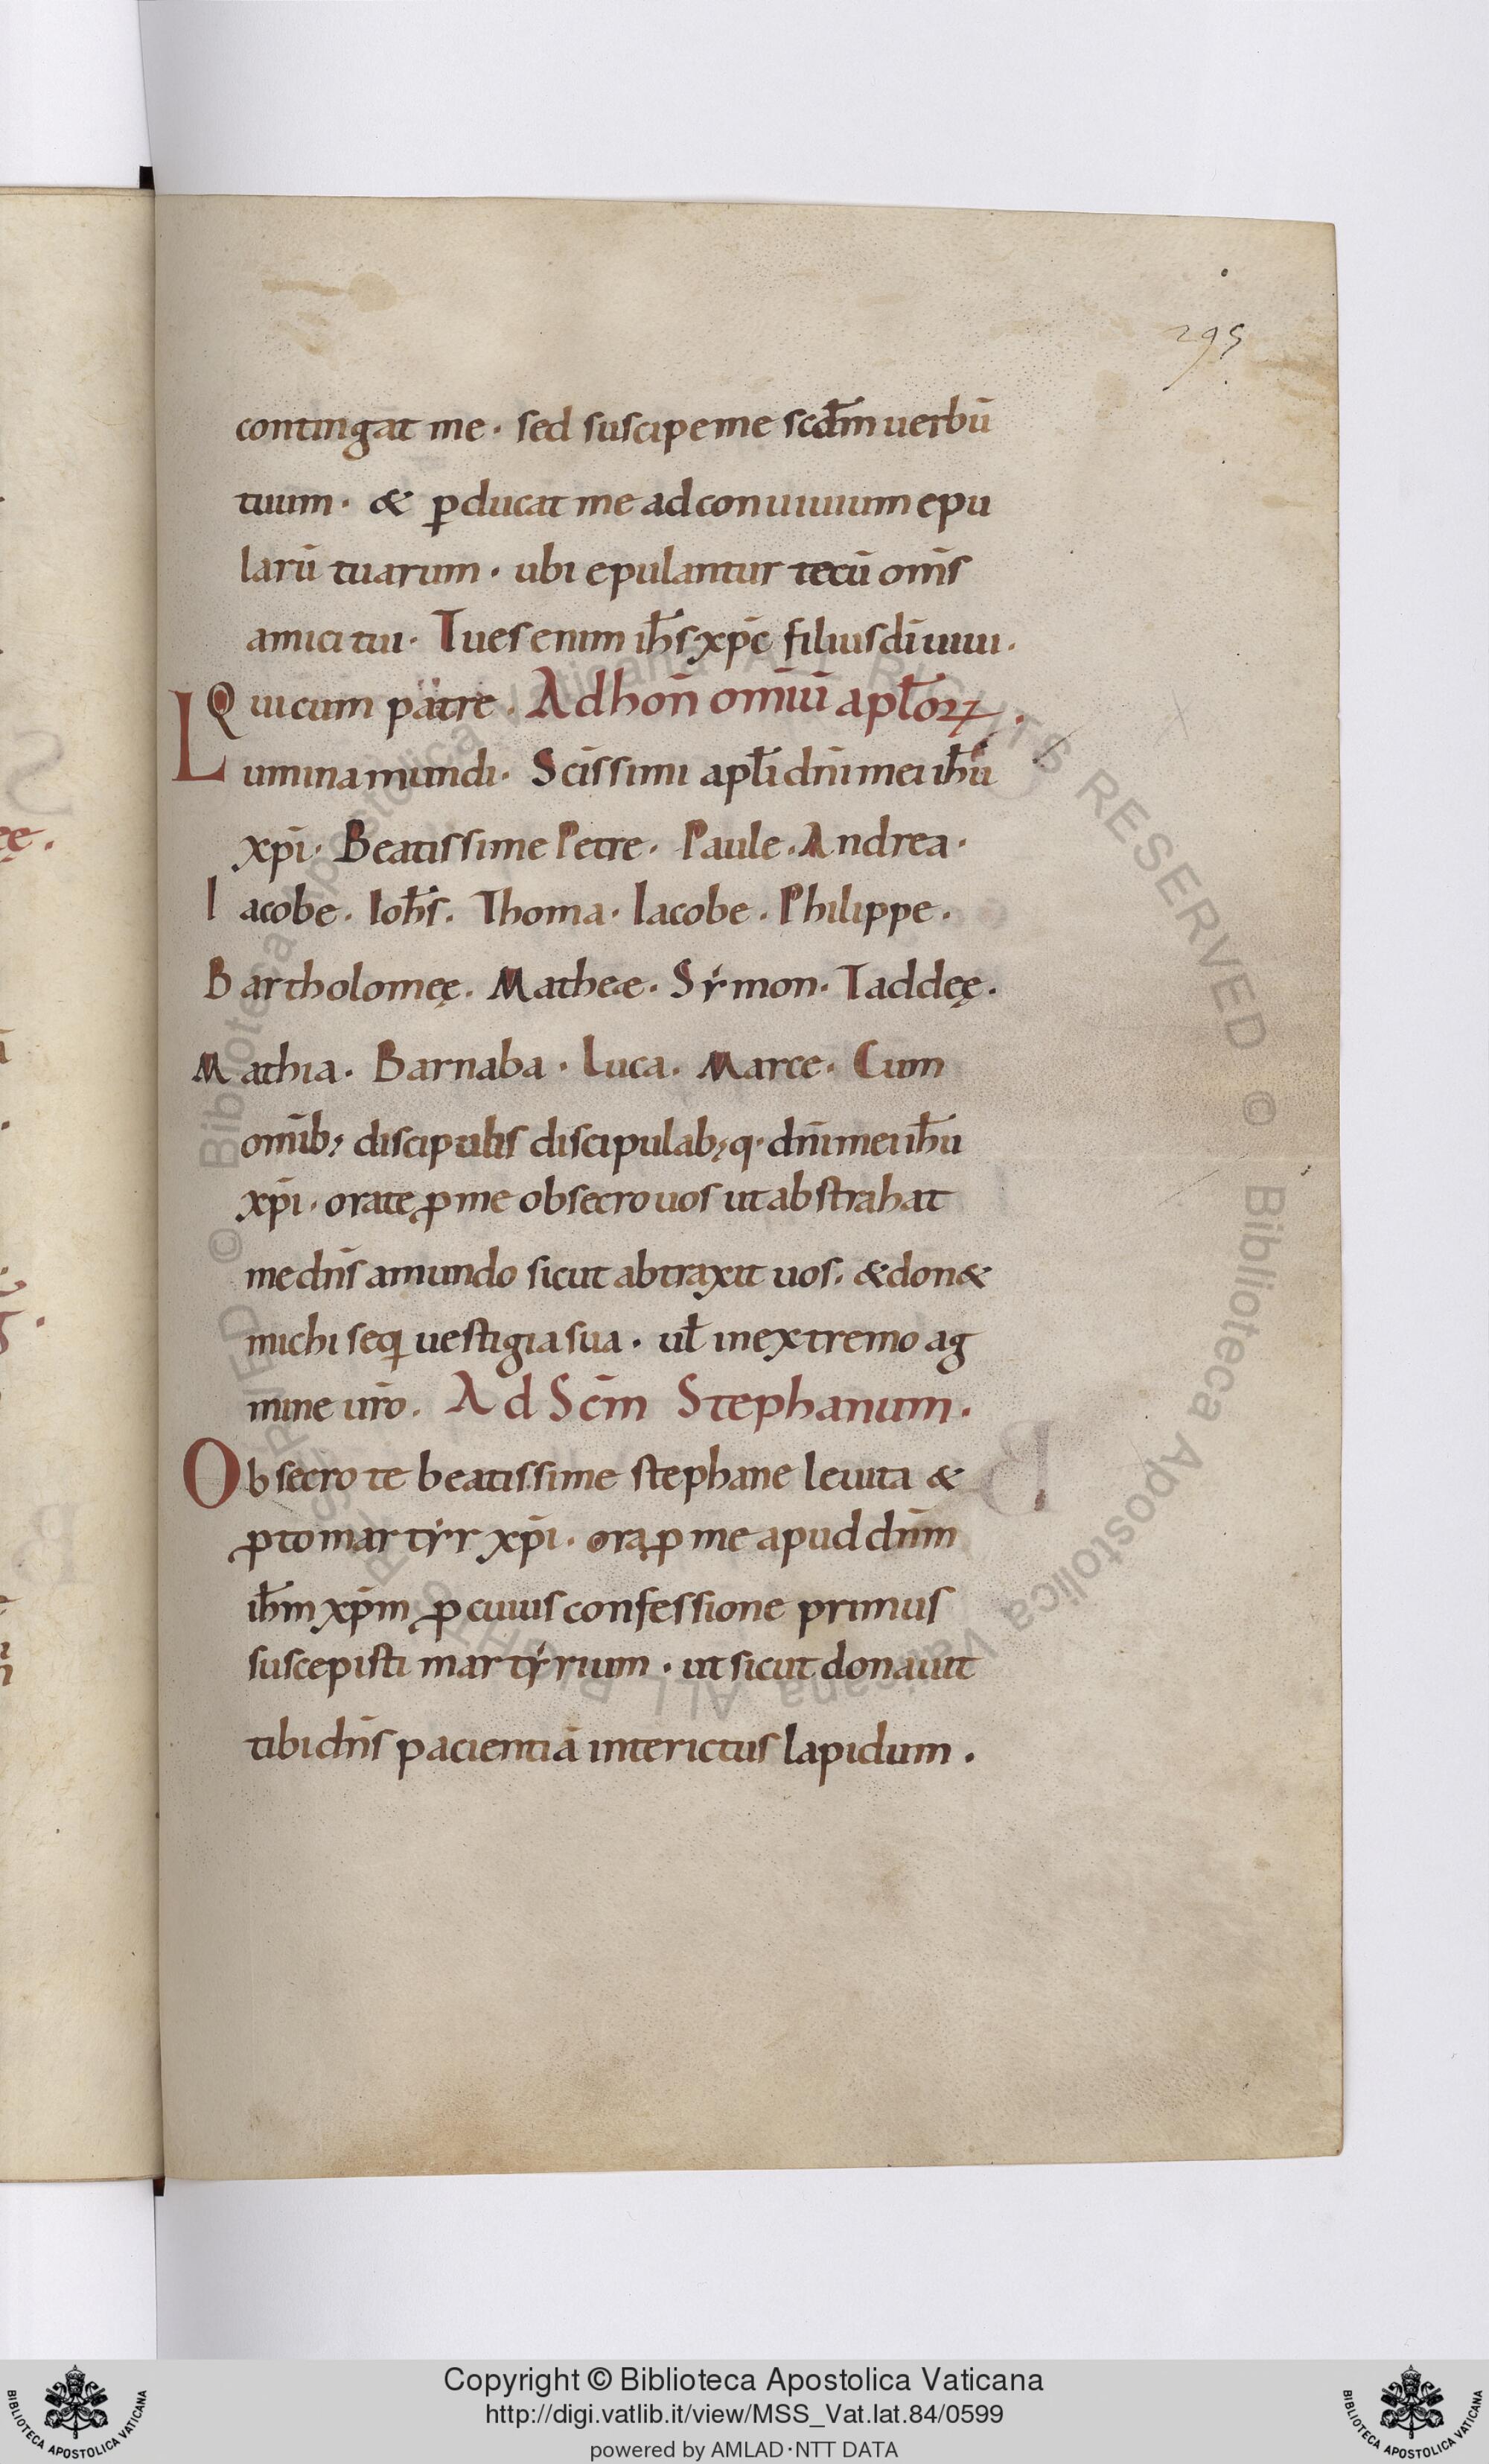 295
contingat me· sed suscipe me scdm̄ uerbū
tuum· & ꝑducat me ad conuiuium epu
larū tuarum· ubi epulantur tecū om̄s
amici tui· Tu es enim ih̄s xp̄c filius dī uiui·
Qui cum patre. Ad hoń omīū apl̄oꝝ.
Lumina mundi· Sc̄issimi apl̄i dn̄i mei ih̄u
xp̄i· Beatissime Petre· Paule· Andrea·
Iacobe. Ioh̄s. Thoma· Iacobe. Philippe.
Bartholomeę. Matheæ. Sẏmon· Taddeę.
Mathia. Barnaba· Luca. Marce· Cum
om̄ib; discipulis discipulab;q· dn̄i mei ih̄u
xp̄i· orate ꝓ me obsecro uos ut abstrahat
me dn̄s a mundo sicut abtraxit uos. & don&
michi seqi uestigia sua· ul̄ in extremo ag
mine ur̄o. Ad Sc̄m Stephanum.
Obsecro te beatissime stephane leuita &
ꝓtomartẏr xp̄i· ora ꝓ me apud dn̄m
ih̄m xp̄m ꝓ cuius confessione primus
suscepisti martẏrium· ut sicut donauit
tibi dn̄s pacientiā inter ictus lapidum.
© Biblioteca Apostolica Vaticana ALL RIGHTS RESERVED © Biblioteca Apostolica Vaticana ALL RIGHTS RESERVED
Copyright © Biblioteca Apostolica Vaticana
http://digi.vatlib.it/view/MSS_Vat.lat.84/0599
powered by AMLAD·NTT DATA
BIBLIOTECA APOSTOLICA VATICANA
BIBLIOTECA APOSTOLICA VATICANA